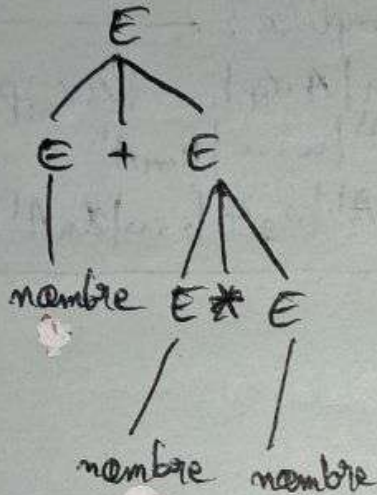 E
E + E
nombre E * E
nombre nombre